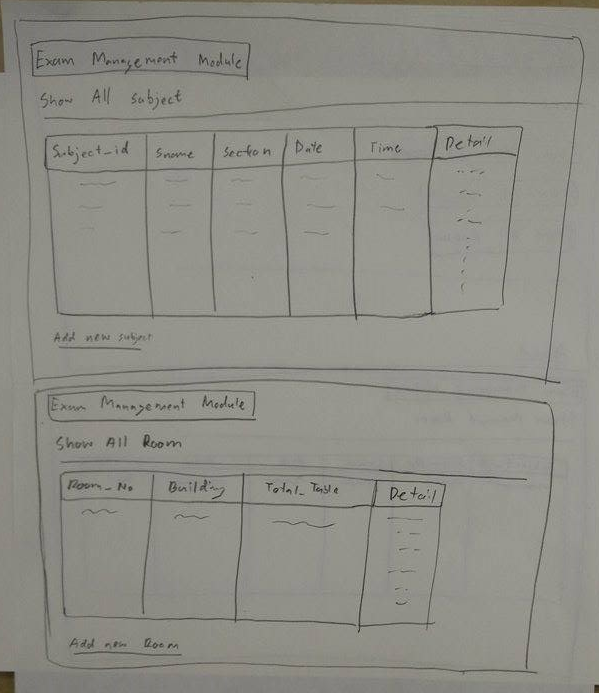 Exam Management Module
Show All Subject
Subject_id Sname Section Date Time Detail
Add new subject
Exam Management Module
Show All Room
Room_No Building Total_Table Detail
Add new Room